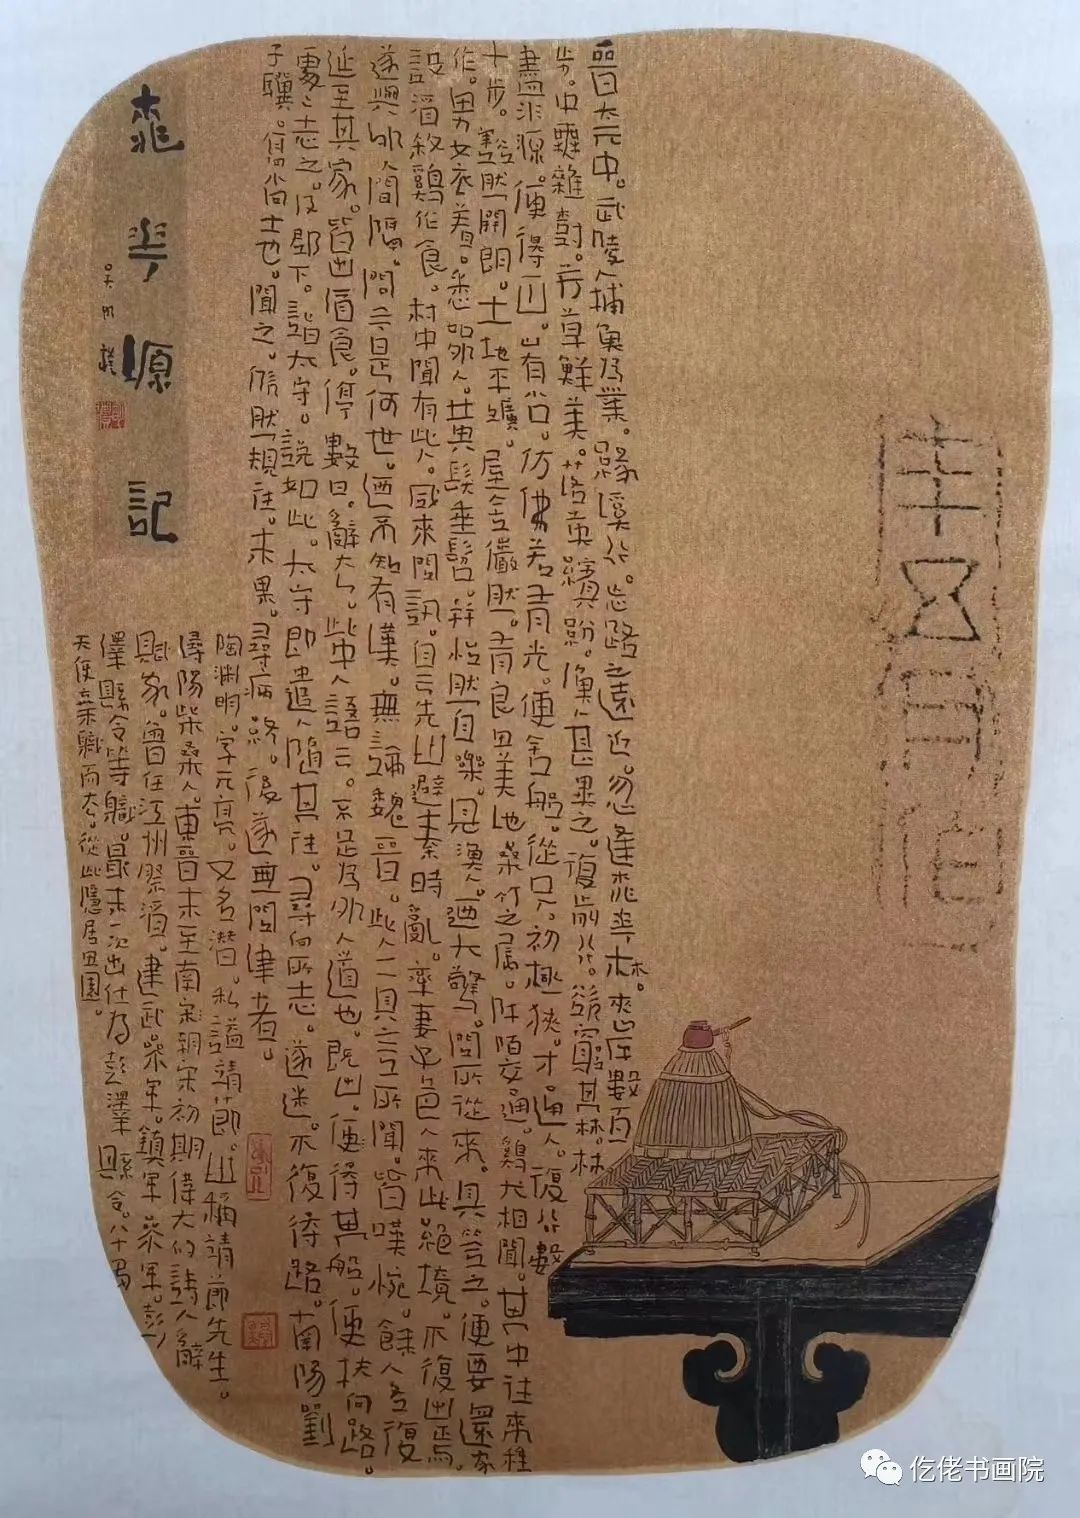 晉太元中。武陵人捕魚為業。緣溪行。忘路之遠近。忽逢桃華林。夾岸數百
步。中無雜樹。芳草鮮美。落英繽紛。漁人甚異之。復前行。欲窮其林。林
盡水源。便得一山。山有小口。仿佛若有光。便舍船。從口入。初極狹。才通人。復行數
十步。豁然開朗。土地平曠。屋舍儼然。有良田美池桑竹之属。阡陌交通。鷄犬相聞。其中往來種
作。男女衣着。悉如外人。黃髮垂髫。並怡然自樂。見漁人。迺大驚。問所從來。具答之。便要還家
設酒殺鷄作食。村中聞有此人。咸來問訊。自云先世避秦時亂。率妻子邑人來此絕境。不復出焉。
遂與外人間隔。問今是何世。迺不知有漢。無論魏晉。此人一一具言所聞。皆嘆惋。餘人各復
延至其家。皆出酒食。停數日。辭去。此中人語云。不足為外人道也。既出。便得其船。便扶向路。
處處志之。及郡下。詣太守。說如此。太守即遣人隨其往。尋向所志。遂迷。不復得路。南陽劉
子驥。高尚士也。聞之。欣然規往。未果。尋病終。後遂無問津者。
陶淵明。字元亮。又名潛。私謚靖節。世稱靖節先生。
潯陽柴桑人。東晉末至南宋朝宋初期偉大的詩人辭
賦家。曾任江州祭酒。建武參軍。鎮軍參軍。彭
澤縣令等職。最末一次出仕為彭澤縣令。八十多
天便棄職而去。從此隱居田園。
桃華源記
仡佬书画院